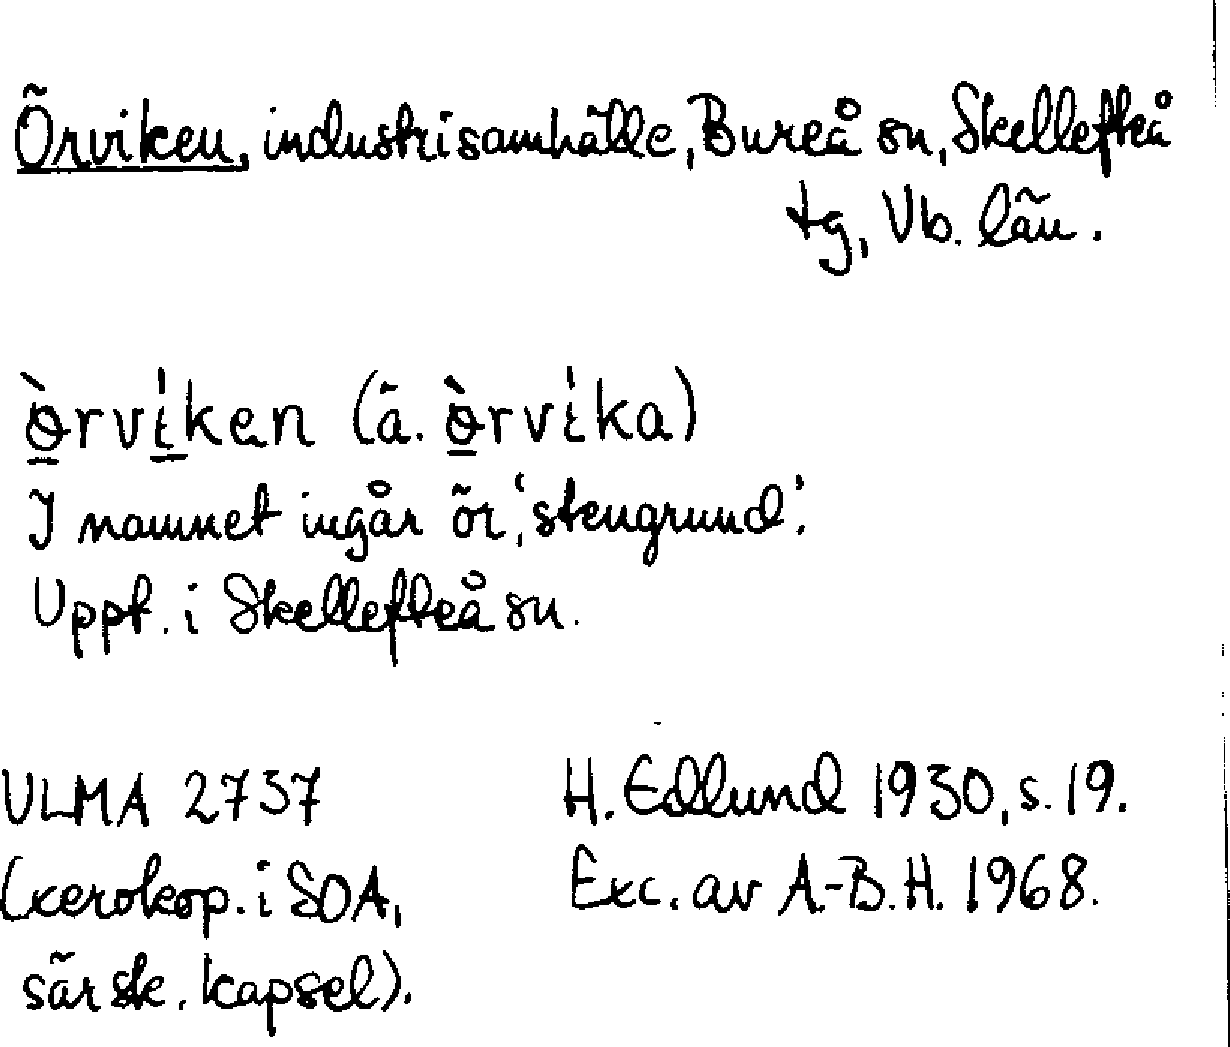 Örviken, industrisamhälle, Bureå sn, Skellefteå
tg, Vb. län.
ɵ̀rvi̍ken (ä. ɵ̀rvi̍ka)
I namnet ingår ör, 'stengrund'.
Uppt. i Skellefteå sn.
ULMA 2737
(xerokop. i SOA,
särsk. kapsel).
H. Edlund 1930, s. 19.
Exc. av A.-B. H. 1968.